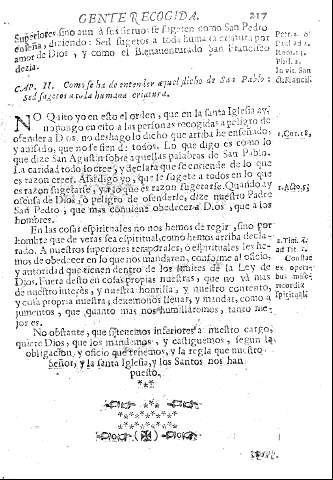 GENTE RECOGIDA. 217
Superiores sino aun à sus siervos se sugeten como San Pedro
enseña, diziendo: Sed sugetos à toda humana criatura por
amor de Dios, y como el Bienaventurado San Francisco
dezia.
CAP. II. Como se ha de entender aquel dicho de San Pablo:
Sed sugetos a toda humana criatura.
NO Quito yo en esto el orden, que en la santa Iglesia ay,
no pongo en esto a las personas recogidas a peligro de
ofender a Dios, no deshago lo dicho que arriba he enseñado
y avisado, que no se fien de todos. Lo que digo es como lo
que dize San Agustin sobre aquellas palabras de San Pablo.
La caridad todo lo cree, y declara que se entiende de lo que
es razon creer. Assi digo yo, que se sugete a todos en lo que
es razon sugetarse, y a lo que es razon sugetarse. Quando ay
ofensa de Dios, ò peligro de ofenderle, dize nuestro Padre
San Pedro, que mas conviene obedecer a Dios, que a los
hombres.
En las cosas espirituales no nos hemos de regir, sino por
hombre que de veras sea espiritual, como hemos arriba decla-
rado. A nuestros superiores temporales, ò espirituales he-
mos de obedecer en lo que nos mandaren, conforme al oficio,
y autoridad que tienen dentro de los limites de la Ley de
Dios. Fuera desto en cosas propias nuestras, que no và mas
de nuestro interès, y nuestra honrilla, y nuestro contento,
y cosa propria nuestra; dexemonos llevar, y mandar, como a
jumentos, que quanto mas nos humillaremos, tanto me-
jor es.
No obstante, que si tenemos inferiores a nuestro cargo,
quiere Dios, que los mandemos, y castiguemos, segun la
obligacion, y oficio que tenemos, y la regla que nuestro
Señor, y la santa Iglesia, y los Santos nos han
puesto.
1.Cor.13.
1.Act.5.